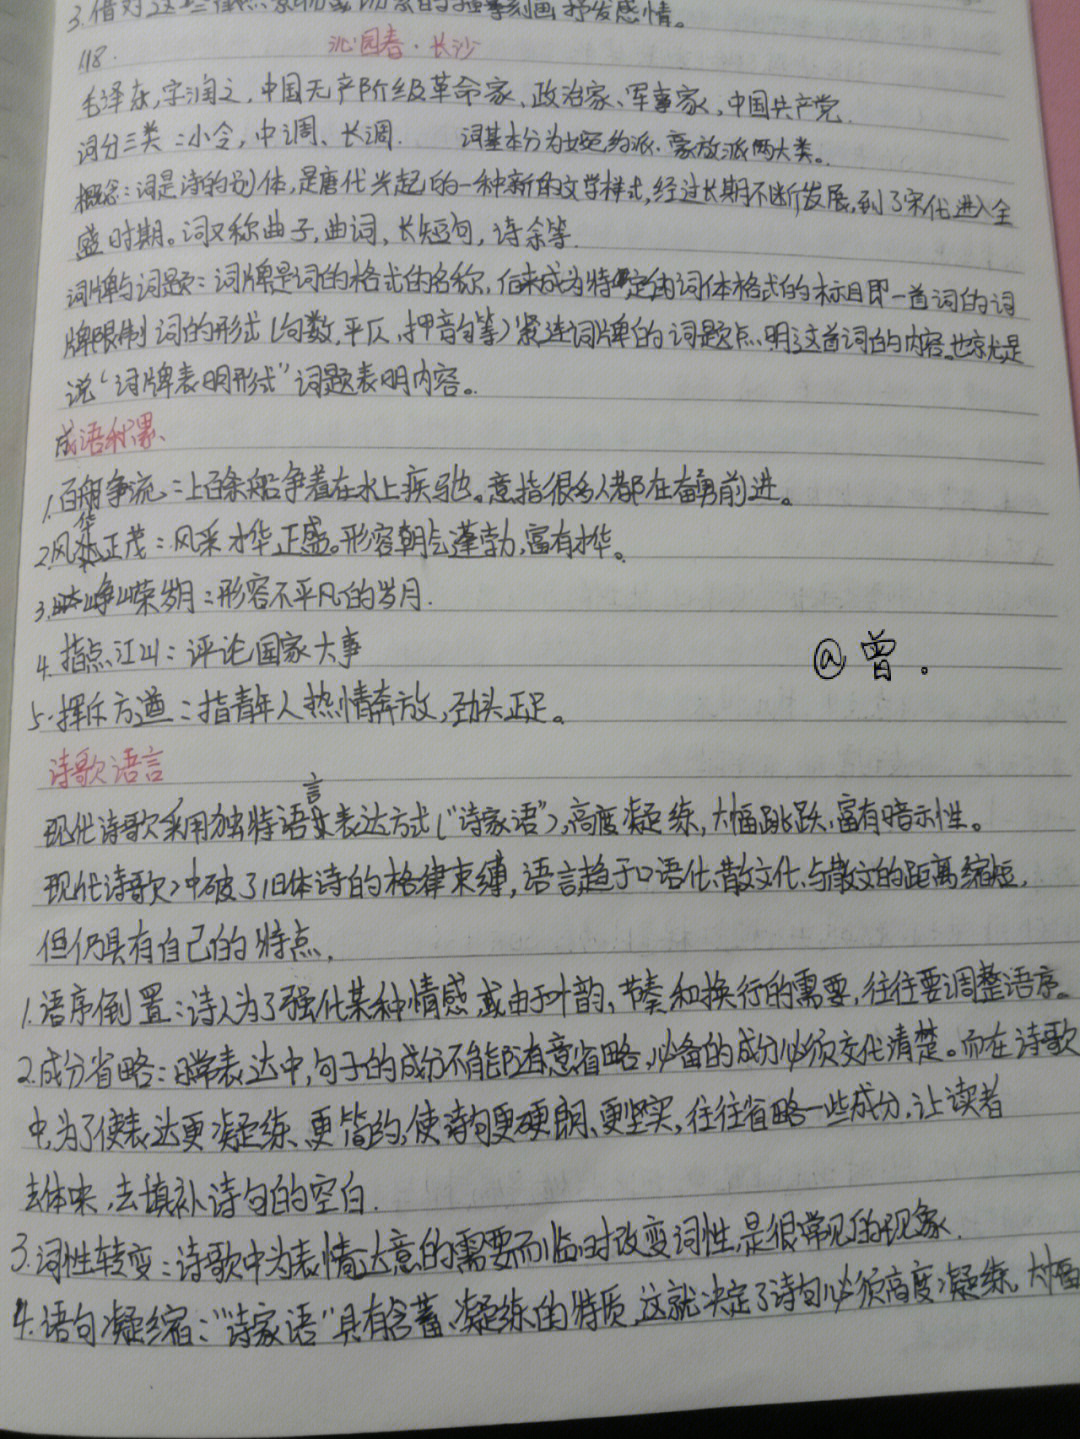 3.借对这些 景物 的 刻画抒发感情。
1.18.
沁园春·长沙
毛泽东,字润之,中国无产阶级革命家、政治家、军事家,中国共产党.
词分三类:小令,中调、长调. 词基本分为婉约派.豪放派两大类。
概念:词是诗的别体,是唐代兴起的一种新的文学样式,经过长期不断发展,到了宋代进入全
盛时期。词又称曲子,曲词,长短句,诗余等.
词牌与词题:词牌是词的格式的名称,后来成为特定的词体格式的标目即一首词的词
牌限制词的形式(句数,平仄,押音句等)紧连词牌的词题点明这首词的内容。也就是
说“词牌表明形式”词题表明内容。
成语积累、
1.百舸争流:上百条船争着在水上疾驰。意指很多人都在奋勇前进。
2.风华正茂:风采才华正盛。形容朝气蓬勃,富有才华。
3.峥嵘岁月:形容不平凡的岁月.
4.指点江山:评论国家大事
@曾.
5.挥斥方遒:指青年人热情奔放,劲头正足。
诗歌语言
现代诗歌采用独特语言表达方式(“诗家语”),高度凝练,大幅跳跃,富有暗示性。
现代诗歌冲破了旧体诗的格律束缚,语言趋于口语化、散文化、与散文的距离缩短,
但仍具有自己的特点.
1.语序倒置:诗人为了强化某种情感,或由于叶韵,节奏和换行的需要,往往要调整语序。
2.成分省略:日常表达中,句子的成分不能随意省略,必备的成分必须交代清楚。而在诗歌
中,为了使表达更凝练、更简约,使诗句更硬朗、更坚实,往往省略一些成分,让读者
去体味,去填补诗句的空白.
3.词性转变:诗歌中为表情达意的需要而临时改变词性,是很常见的现象.
4.语句凝缩:“诗家语”具有含蓄、凝练的特质,这就决定了诗句必须高度凝练、大幅